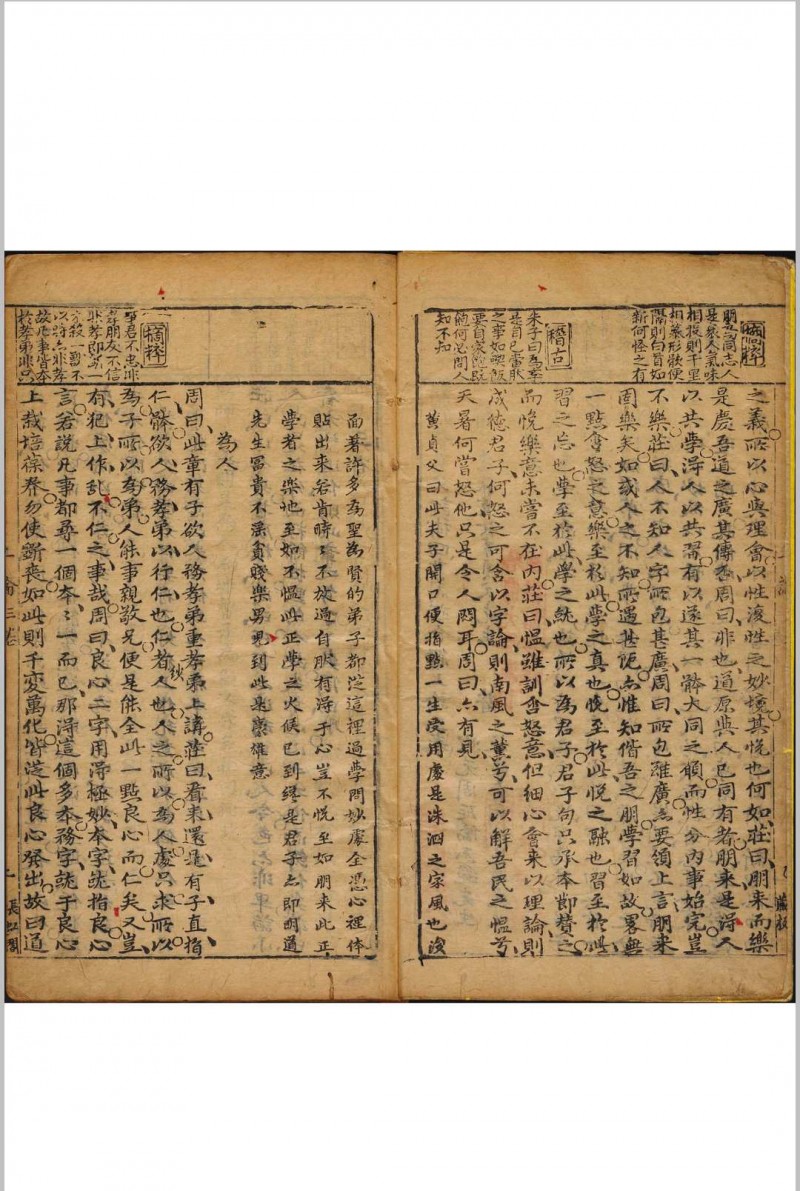 摘粹
朋是同志人
是衆人氣味
相投則千里
相慕形骸便
隔則勾首如
新何怪之有
稽古
朱子曰為學
是自已當然
之事如喫飯
要自家吃既
飽何必問人
知不知
之義所以心與理會以性浚性之妙境其悅也何如莊曰朋來而樂
是慶吾道之廣其傳香周曰非也道原與人已同有者朋來是淂人
以共學淂人以共習有以遂其一體大同之願而性分內事始完豈
不樂莊曰人不知人字所包甚廣周曰所包雖廣亦要領上言朋來
固樂矣如或人之不知所遇甚詭亦惟知偕吾之朋學習如故畧無
一點含怒之意樂至於此學之真也悅至於此悅之融也習至於此
習之忘也學至於此學之純也所以為君子君子句只承本節贊之
而悅樂意未嘗不在內莊曰慍雖訓含怒意但細心會來以理論則
成德君子何怒之可含以字論則南風之薰兮可以解吾民之慍兮
天暑何嘗怒他只是令人悶耳周曰亦有見
黃貞父曰此夫子開口便指點一生受用處是洙泗之家風也後
面著許多為聖為賢的弟子都從這裡過學問妙處全憑心裡体
貼出來若肯時時不放過自然有淂于心豈不悅至如朋來此正
學者之樂地至如不慍此正學之火候已到纔是君子亦即明道
先生冨貴不滛貧賤樂男兒到此是豪雄意
為人
摘粹
事君不忠非
孝朋友不信
非孝即殺一
獸一不
以時亦非孝
故凡事皆本
於孝弟非只
周曰此章有子欲人務孝弟重孝弟上講莊曰看來還是有子直指
仁體欲人務孝弟以行仁也仁者人也人之所以為人處只求所以
為子所以為弟人能事親敬兄便是能全此一點良心而仁矣又豈
有犯上作乱不仁之事哉周曰良心二字用淂極妙本字就指良心
言若說凡事都尋一個本本一而已那淂這個多本務字就于良心
上栽培葆養勿使斲喪如此則千變萬化皆從此良心發出故曰道